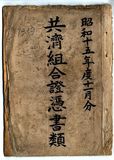 昭和十五年度十一月分
共濟組合證憑書類